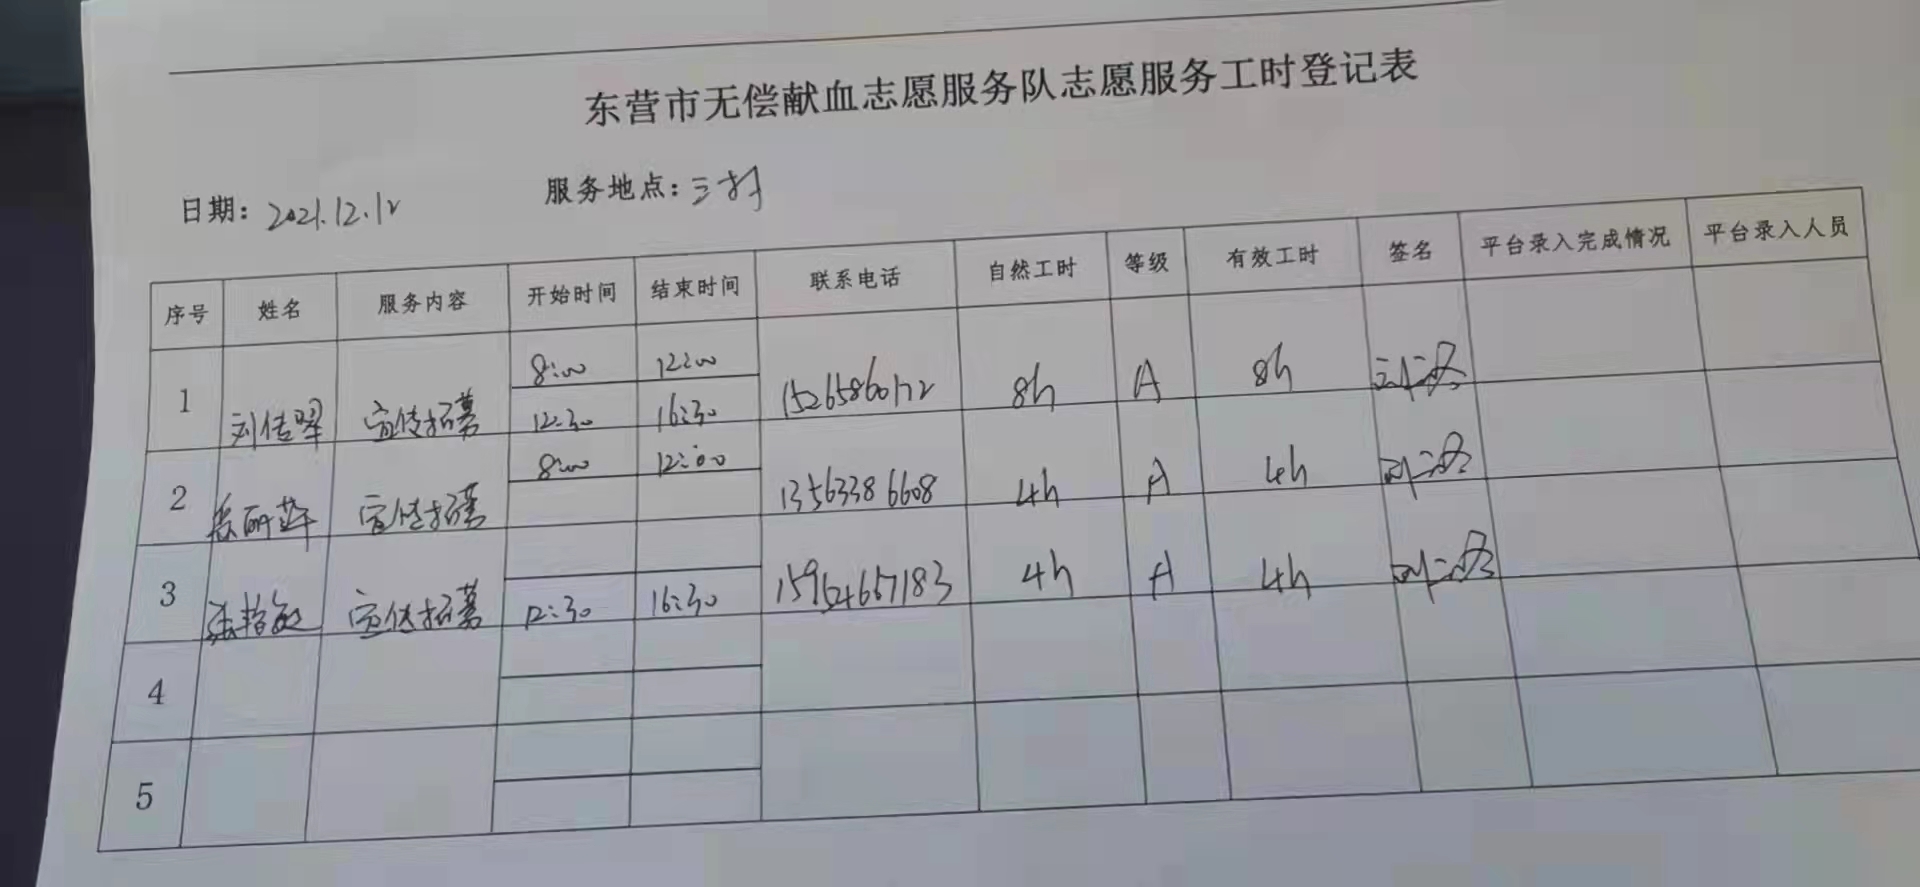 东营市无偿献血志愿服务队志愿服务工时登记表
日期: 2021.12.12 服务地点: 三村
序号 姓名 服务内容 开始时间 结束时间 联系电话 自然工时 等级 有效工时 签名 平台录入完成情况 平台录入人员
8:00 12:00
1 刘传翠 宣传招募 12:30 16:30 15265860172 8h A 8h
8:00 12:00
2 丽萍 宣传招募 13563386608 4h A 4h
3 宣传招募 12:30 16:30 15954667183 4h A 4h
4
5